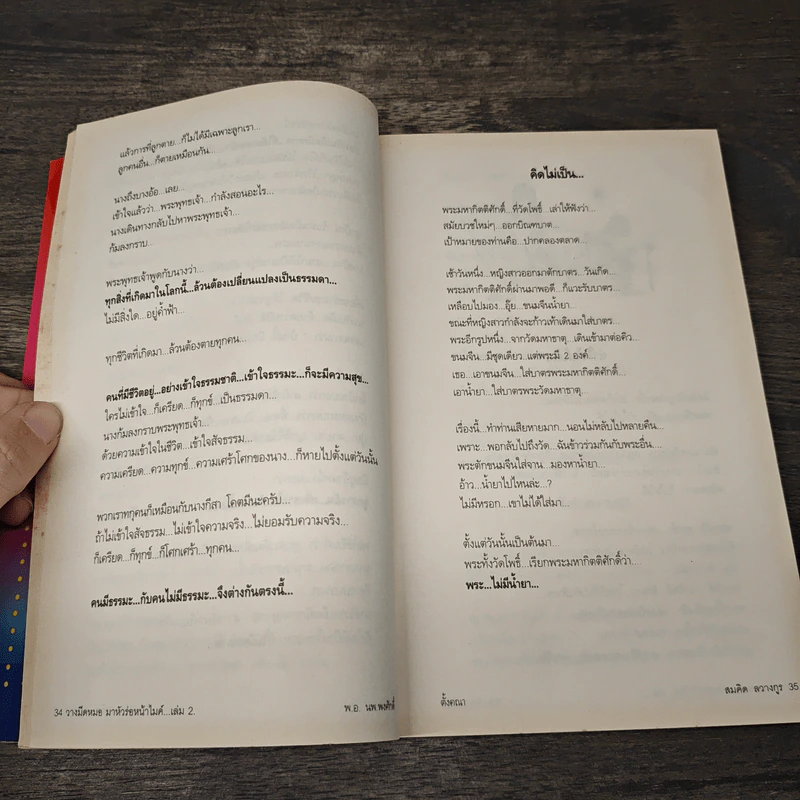 แล้วการที่ลูกตาย...ก็ไม่ได้มีเฉพาะลูกเรา...
ลูกคนอื่น...ก็ตายเหมือนกัน...
นางถึงบางอ้อ...เลย...
เข้าใจแล้วว่า...พระพุทธเจ้า...กำลังสอนอะไร...
นางเดินทางกลับไปหาพระพุทธเจ้า...
ก้มลงกราบ...
พระพุทธเจ้าพูดกับนางว่า...
ทุกสิ่งที่เกิดมาในโลกนี้...ล้วนต้องเปลี่ยนแปลงเป็นธรรมดา...
ไม่มีสิ่งใด...อยู่ค้ำฟ้า...
ทุกชีวิตที่เกิดมา...ล้วนต้องตายทุกคน...
คนที่มีชีวิตอยู่...อย่างเข้าใจธรรมชาติ...เข้าใจธรรมะ...ก็จะมีความสุข...
ใครไม่เข้าใจ...ก็เครียด...ก็ทุกข์...เป็นธรรมดา...
นางก้มลงกราบพระพุทธเจ้า...
ด้วยความเข้าใจในชีวิต...เข้าใจสัจธรรม...
ความเครียด...ความทุกข์...ความเศร้าโศกของนาง...ก็หายไปตั้งแต่วันนั้น
พวกเราทุกคนก็เหมือนกับนางกีสา โคตมีนะครับ...
ถ้าไม่เข้าใจสัจธรรม...ไม่เข้าใจความจริง...ไม่ยอมรับความจริง...
ก็เครียด...ก็ทุกข์...ก็โศกเศร้า...ทุกคน...
คนมีธรรมะ...กับคนไม่มีธรรมะ...จึงต่างกันตรงนี้...
34 วางมีดหมอ มาหัวร่อหน้าไมค์...เล่ม 2.
พ.อ. นพ.พงศักดิ์
คิดไม่เป็น...
พระมหากิตติศักดิ์...ที่วัดโพธิ์ เล่าให้ฟังว่า...
สมัยบวชใหม่ๆ...ออกบิณฑบาต...
เป้าหมายของท่านคือ...ปากคลองตลาด...
เช้าวันหนึ่ง...หญิงสาวออกมาตักบาตร...วันเกิด...
พระมหากิตติศักดิ์ผ่านมาพอดี...ก็แวะรับบาตร...
เหลือบไปมอง...อุ๊ย...ขนมจีนน้ำยา...
ขณะที่หญิงสาวกำลังจะก้าวเท้าเดินมาใส่บาตร...
พระอีกรูปหนึ่ง...จากวัดมหาธาตุ...เดินเข้ามาต่อคิว...
ขนมจีน...มีชุดเดียว...แต่พระมี 2 องค์...
เธอ...เอาขนมจีน...ใส่บาตรพระมหากิตติศักดิ์...
เอาน้ำยา...ใส่บาตรพระวัดมหาธาตุ...
เรื่องนี้...ทำท่านเสียหายมาก...นอนไม่หลับไปหลายคืน...
เพราะ...พอกลับไปถึงวัด...ฉันข้าวร่วมกันกับพระอื่น....
พระตักขนมจีนใส่จาน...มองหาน้ำยา...
อ้าว...น้ำยาไปไหนล่ะ...?
ไม่มีหรอก...เขาไม่ได้ใส่มา...
ตั้งแต่วันนั้นเป็นต้นมา...
พระทั้งวัดโพธิ์...เรียกพระมหากิตติศักดิ์ว่า...
พระ...ไม่มีน้ำยา...
ตั้งคณา
สมคิด ลวางกูร 35